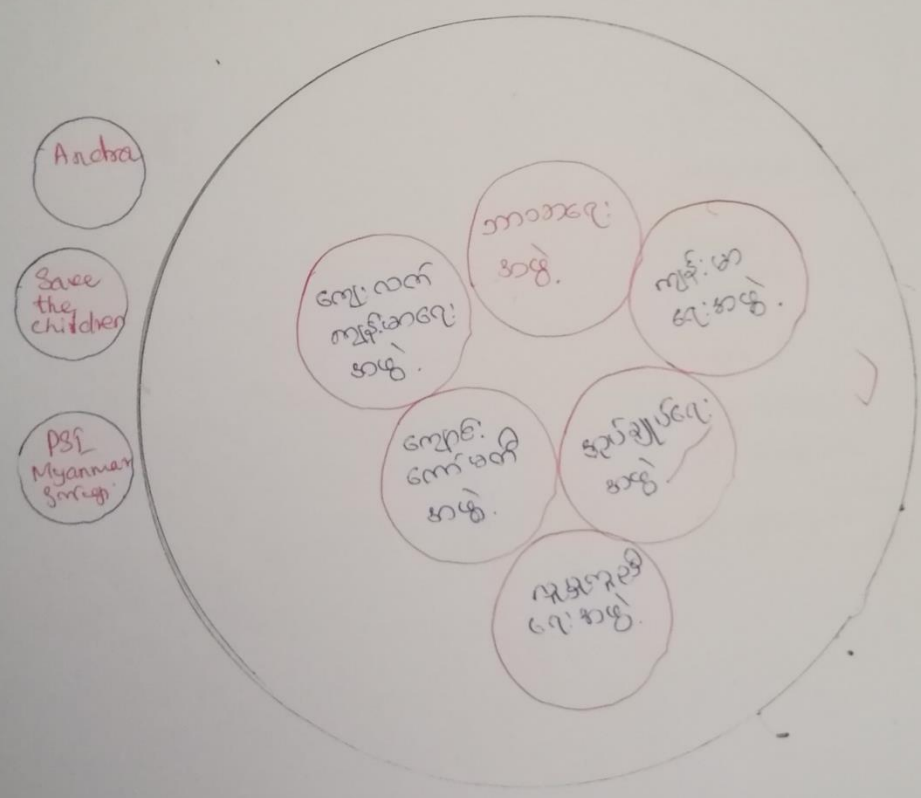 Andra
Save
the
children
PSI
Myanmar
ဘာသာရေး
အဖွဲ့.
ကျန်းမာ
ရေးအဖွဲ့.
ကျေးလက်
ကျန်းမာရေး
အဖွဲ့.
ကျောင်း
ကော်မတီ
အဖွဲ့.
အုပ်ချုပ်ရေး
အဖွဲ့
လူမှုကူညီ
ရေးအဖွဲ့.